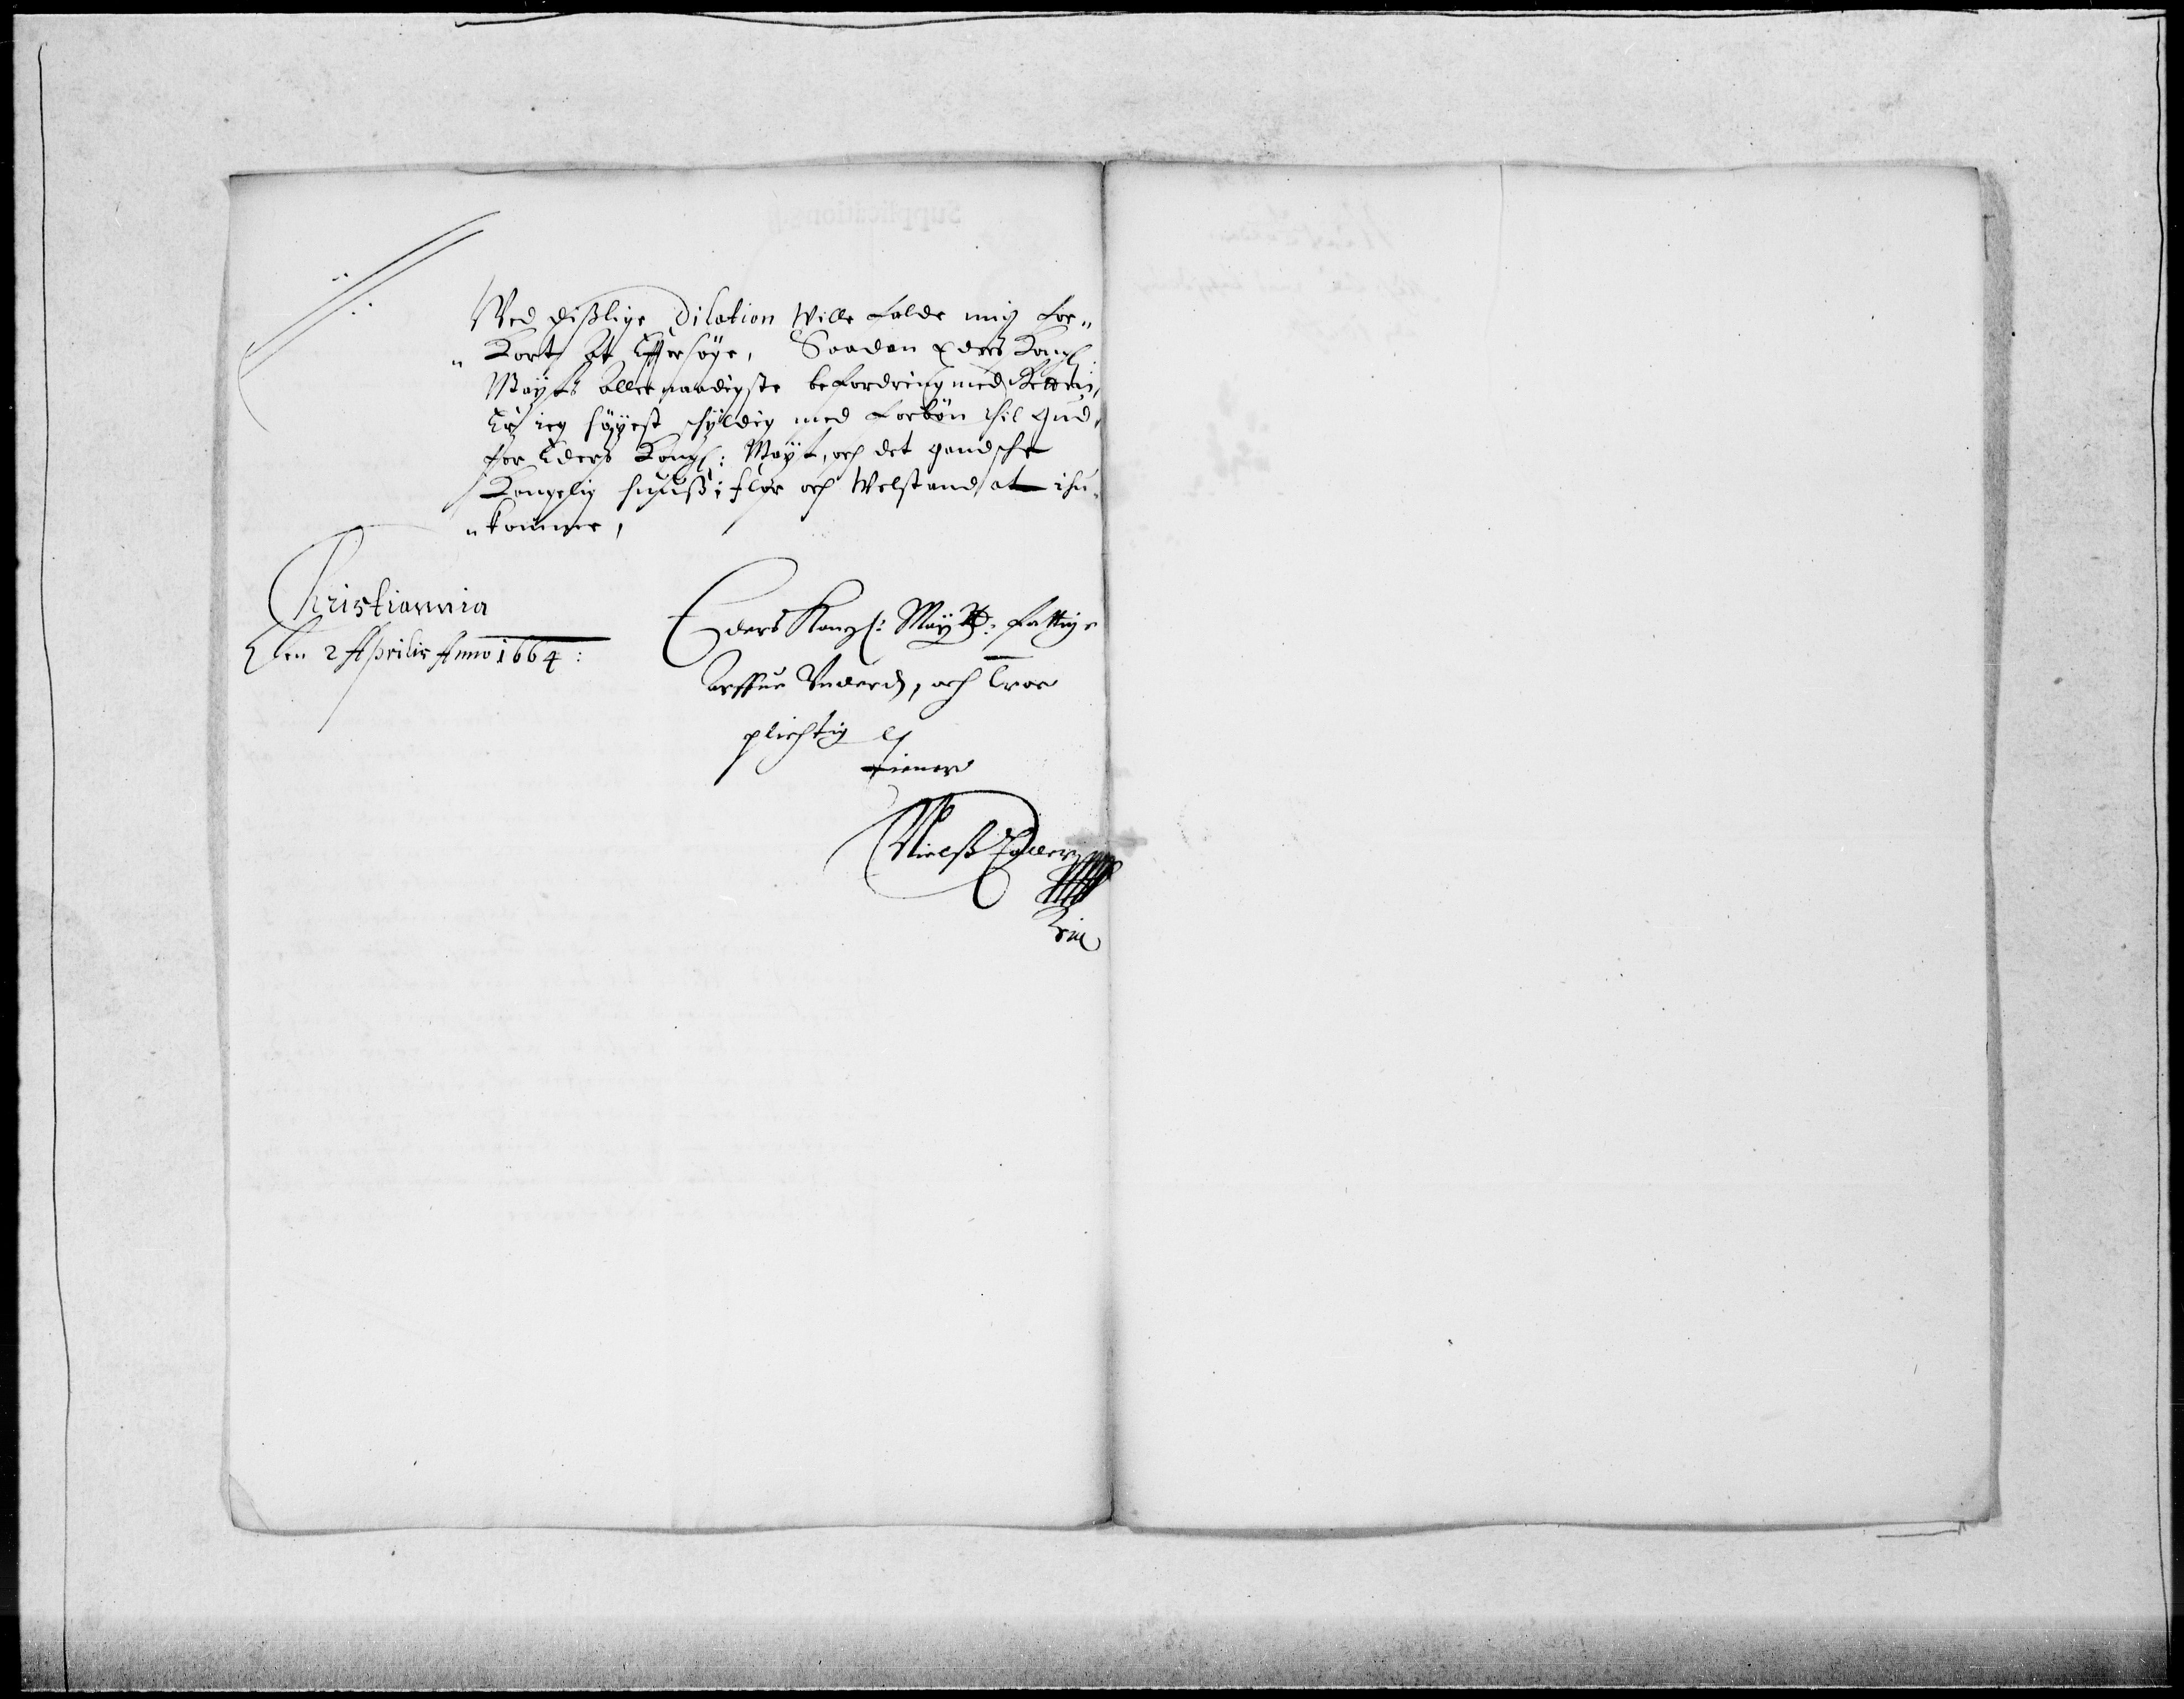 Ved dißlige Dilation Wille falde mig for„
„Kort at Effersøge, Saadan Eders Kongl:
Mayts allernaadigste befordring med
Er ieg høyest schyldig med forbøn thil Gud,
for Eders Kongl: Mayt, och det gandsche
Kongelig Huuß i flor och Welstand at ihu„
„komme,
Christiannia
Den 2 Aprilis Anno 1664:
Eders Kongl: Maytt: fattig
arffue Vnderd, och troe
plichtig
tiener
Nielß